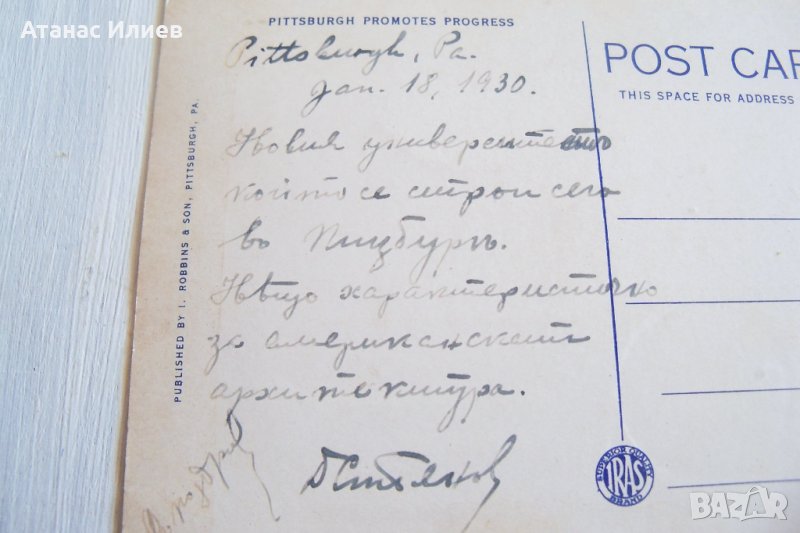 Атанас Илиев
PITTSBURGH PROMOTES PROGRESS
Pittsburgh, Pa.
Jan. 18, 1930.
Новия университетъ
който се строи сега
въ Пицбургъ.
Нѣщо характеристично
за американската
архитектура.
POST CAR
THIS SPACE FOR ADDRESS
PUBLISHED BY I. ROBBINS & SON, PITTSBURGH, PA.
SUPERIOR QUALITY
IRAS
BRAND
bazar.bg